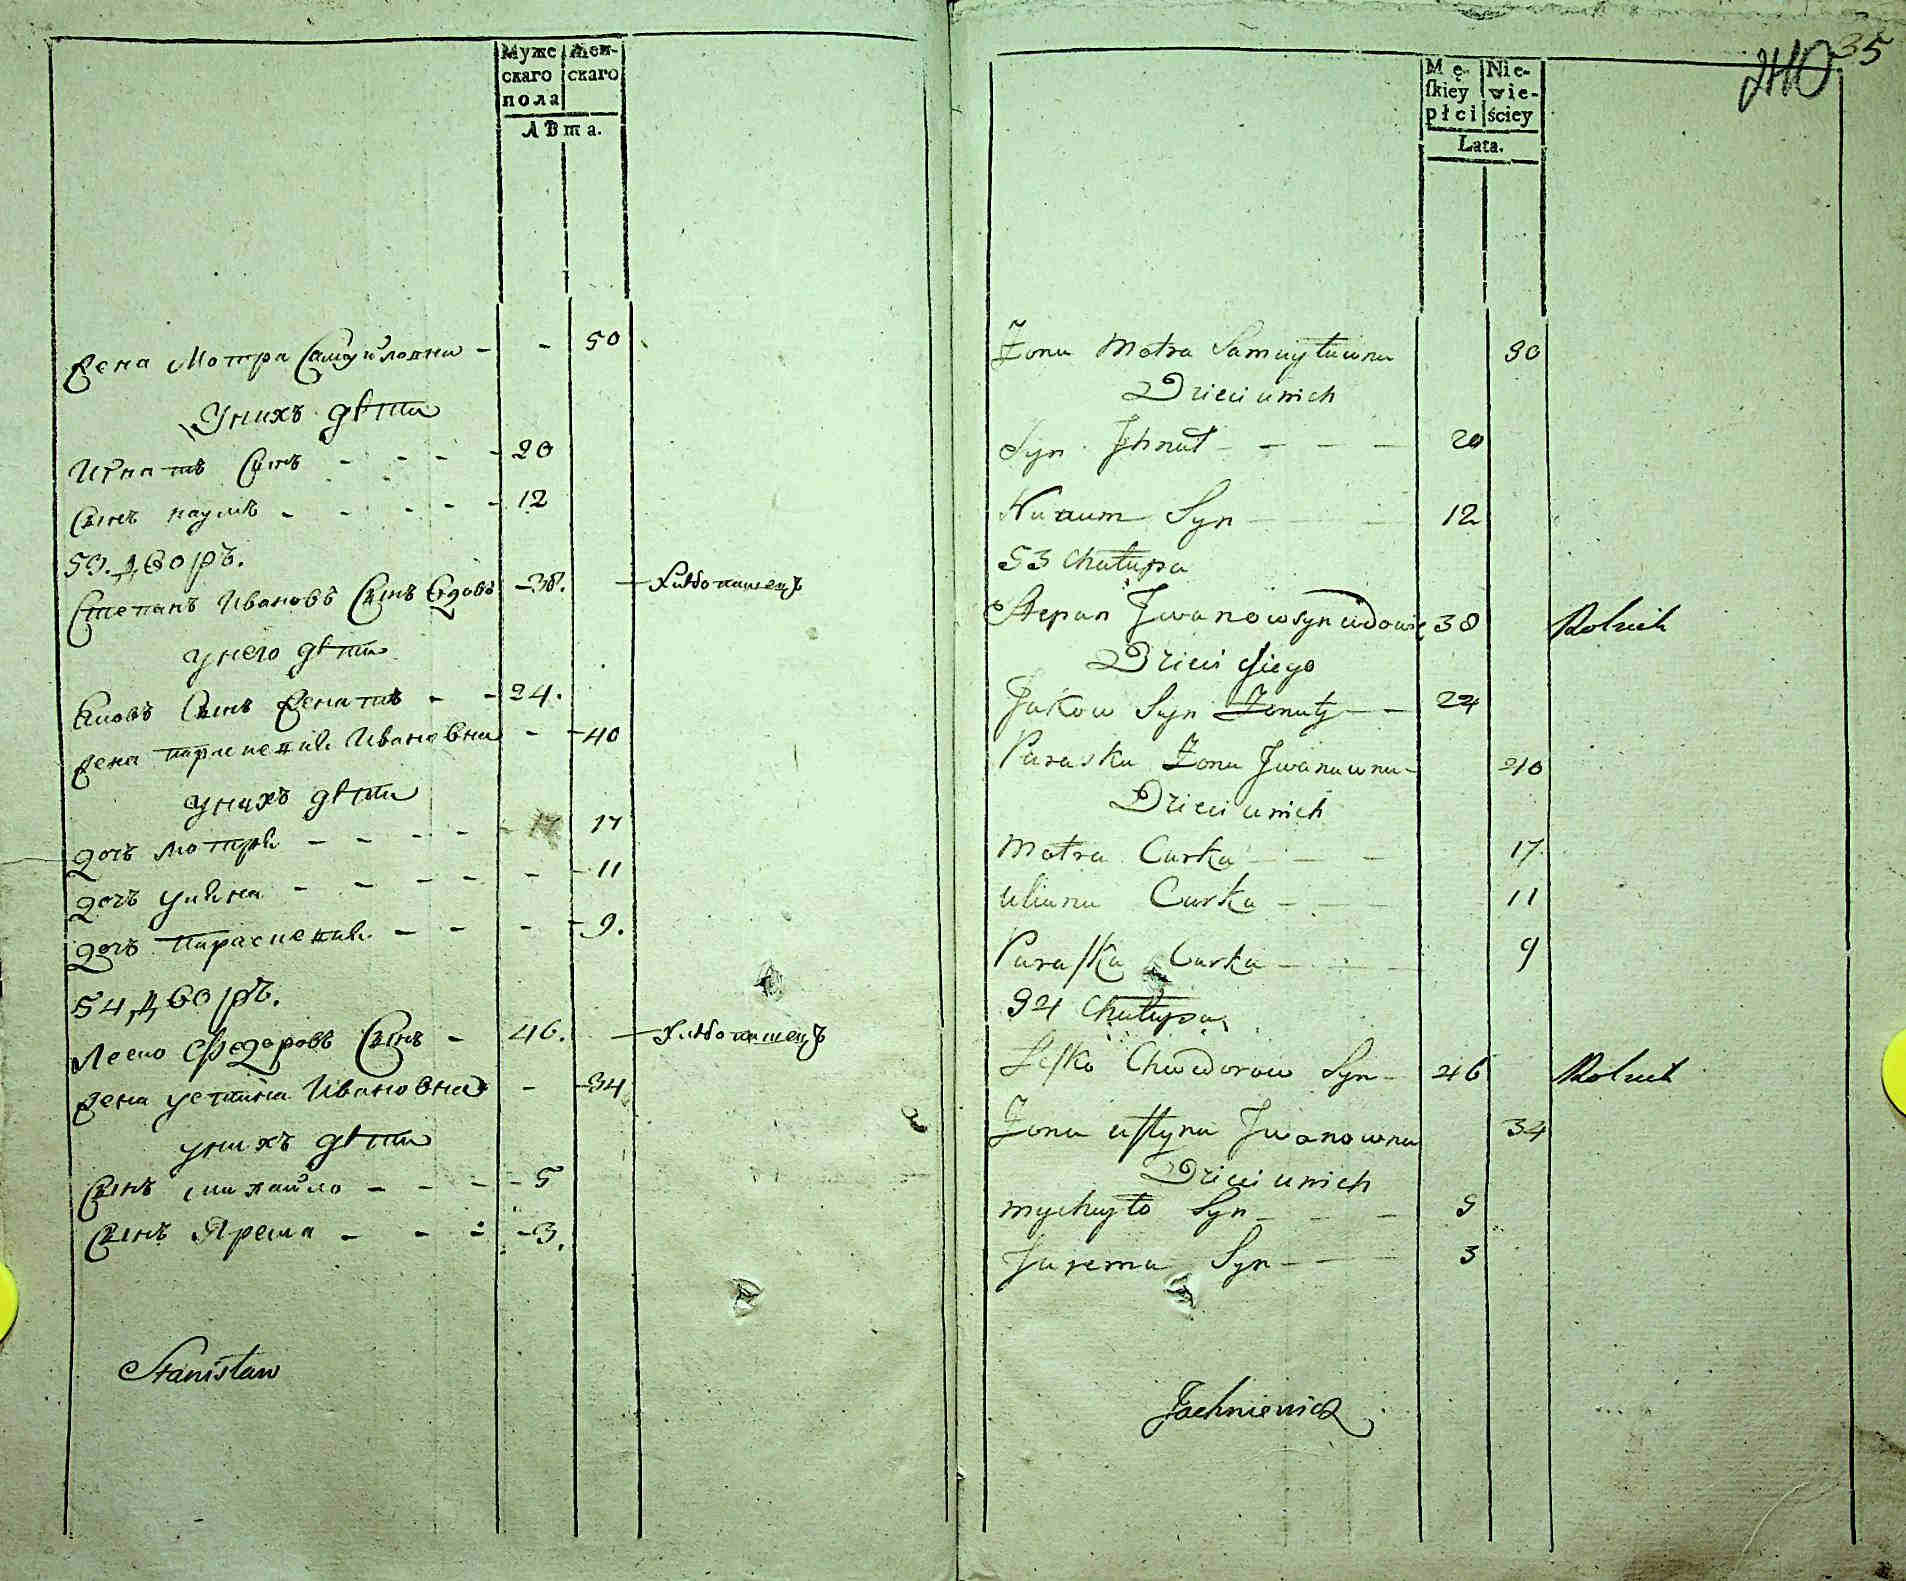 Муже Жен-
скаго скаго
пола
Лѣта.
Жена Мотра Самуйловна - - 50
Унихъ дѣти
Игнатъ Сынъ - - - - 20
Сынъ наумъ - - - - - 12
53. дворъ.
Степанъ Ивановъ Сынъ Вдовъ - 38. Хлѣбопашецъ
унего дѣти
Яковъ Сынъ Женатъ - - 24.
Жена параскевия Ивановна - - 40
унихъ дѣти
дочь мотря - - - - 17
дочь уляна - - - - - - 11
дочь параскевия - - - - 9.
54 дворъ.
Леско Федоровъ Сынъ - 46. Хлѣбопашецъ
Жена устина Ивановна - - 34
унихъ дѣти
Сынъ михайло - - - - 5
Сынъ Ярема - - - - 3.
Stanisław
35
240
Mę- Nie-
ſkiey wie-
płci ściey
Lata.
Żona Motra Samuyłuwna 50
Dzieci unich
Syn Jhnat - - - 20
Nuaum Syn - - 12
53 Chałupa
Stepan Jwanow syn wdowiec 38 Rolnik
Dzieci Jiego
Jakow Syn Żonaty - - 24
Paraska Żona Jwanuwna - 40
Dzieci unich
Motra Curka - - - 17
uliana Curka - - - 11
Paraſka Curka - - - 9
54 Chałupa
Leſko Chwedorow Syn - 46 Rolnik
Żona uſtyna Jwanowna 34
Dzieci unich
mychyło Syn - - - 5
Jarema Syn - - - 3
Jachniewicz